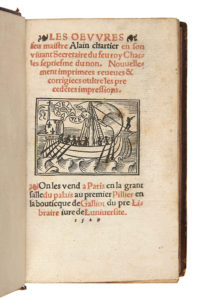 LES OEUVRES
feu maistre Alain chartier en son
viuant Secretaire du feu roy Char
les septiesme du non. Nouuelle
ment imprimees reueues &
corrigiees oultre les pre
cedētes impressions.
On les vend a Paris en la grant
salle du palais au premier Pillier en
la bouticque de Galliot du pre Li
braire iure de Luniuersite.
1529